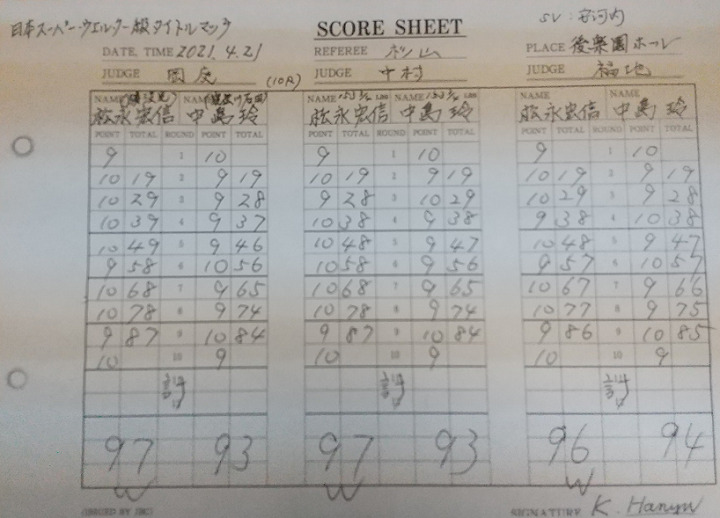 日本スーパーウエルター級タイトルマッチ SCORE SHEET SV:安河内
DATE, TIME 2021. 4. 21 REFEREE 杉山 PLACE 後楽園ホール
JUDGE JUDGE 中村 JUDGE 福地
(10R)
NAME NAME NAME 153 3/4 LBS NAME LBS NAME NAME
松永宏信 中島 玲 松永宏信 中島 玲 松永宏信 中島 玲
POINT TOTAL ROUND POINT TOTAL POINT TOTAL ROUND POINT TOTAL POINT TOTAL ROUND POINT TOTAL
9 1 10 9 1 10 9 1 10
10 19 2 9 19 10 19 2 9 19 10 19 2 9 19
10 29 3 9 28 9 28 3 10 29 10 29 3 9 28
10 39 4 9 37 10 38 4 9 38 9 38 4 10 38
10 49 5 9 46 10 48 5 9 47 10 48 5 9 47
9 58 6 10 56 10 58 6 9 56 9 57 6 10 57
10 68 7 9 65 10 68 7 9 65 10 67 7 9 66
10 78 8 9 74 10 78 8 9 74 10 77 8 9 75
9 87 9 10 84 9 87 9 10 84 9 86 9 10 85
10 10 9 10 10 9 10 10 9
計 計 計
97 93 97 93 96 94
W W W
(ISSUED BY JBC) SIGNATURE K. Hanyu